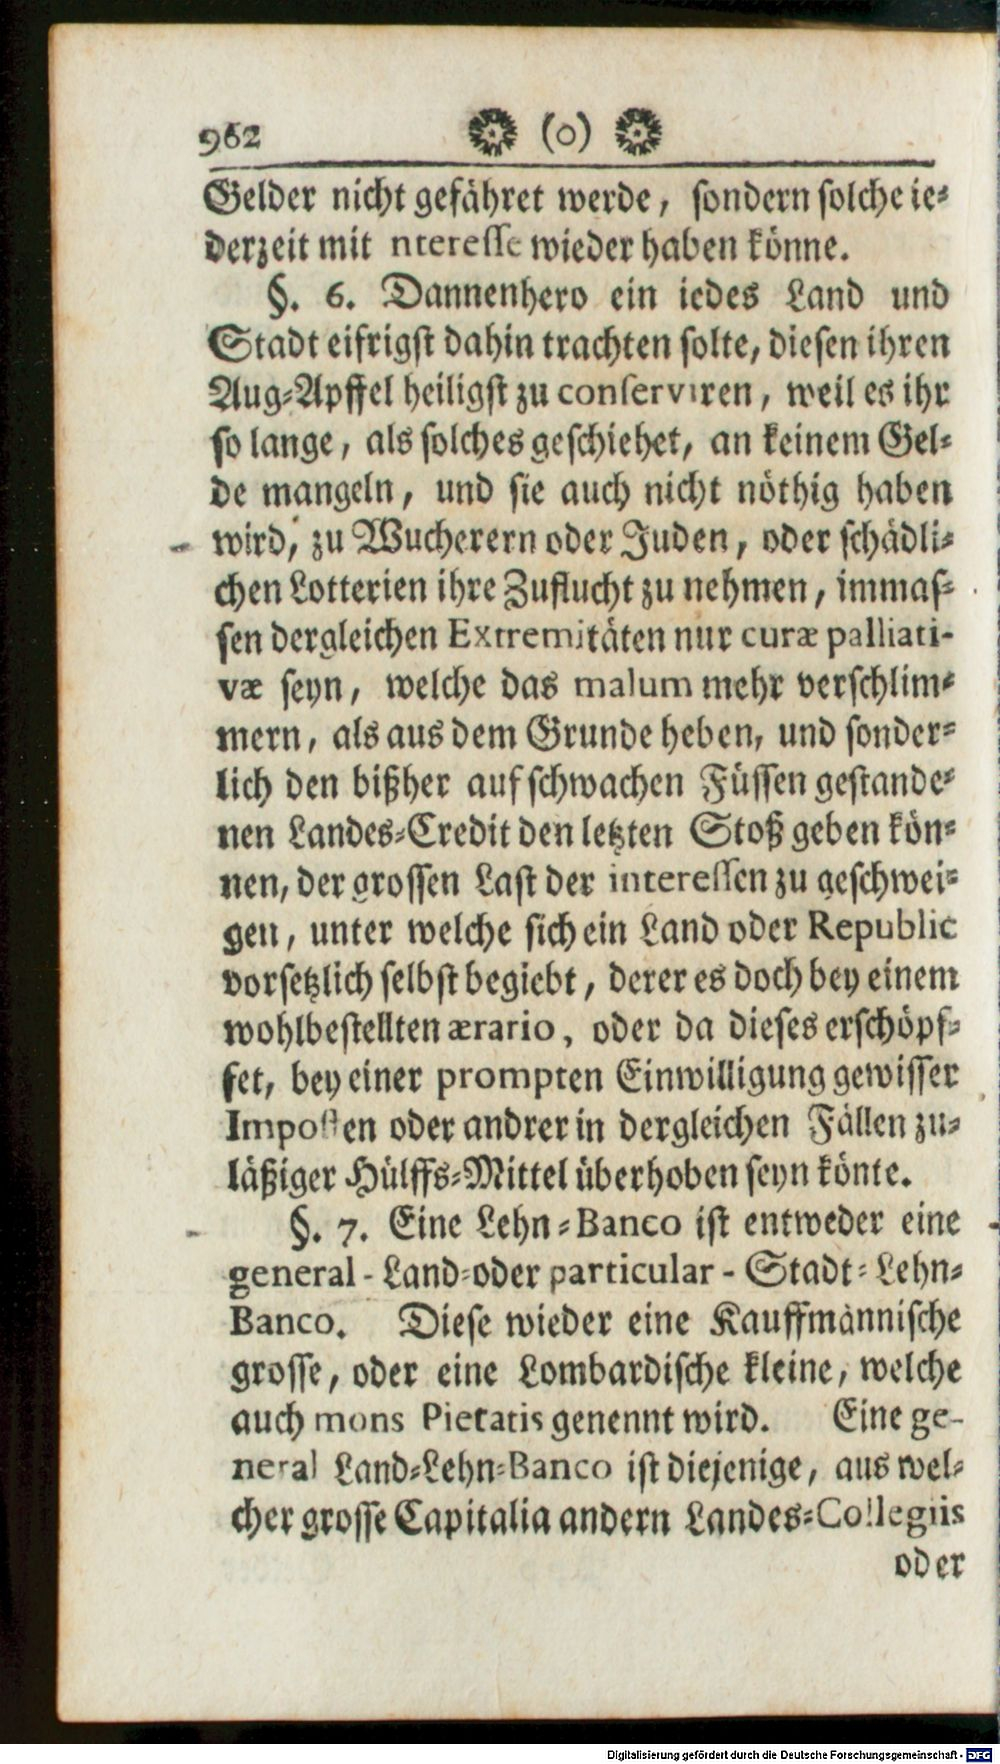 962 (o)
Gelder nicht gefähret werde, sondern solche ie-
derzeit mit nteresse wieder haben könne.
§. 6. Dannenhero ein iedes Land und
Stadt eifrigst dahin trachten solte, diesen ihren
Aug-Apffel heiligst zu conserviren, weil es ihr
so lange, als solches geschiehet, an keinem Gel-
de mangeln, und sie auch nicht nöthig haben
wird, zu Wucherern oder Juden, oder schädli-
chen Lotterien ihre Zuflucht zu nehmen, immas-
sen dergleichen Extremitäten nur curæ palliati-
væ seyn, welche das malum mehr verschlim-
mern, als aus dem Grunde heben, und sonder-
lich den bißher auf schwachen Füssen gestande-
nen Landes-Credit den letzten Stoß geben kön-
nen, der grossen Last der interessen zu geschwei-
gen, unter welche sich ein Land oder Republic
vorsetzlich selbst begiebt, derer es doch bey einem
wohlbestellten ærario, oder da dieses erschöpf-
fet, bey einer prompten Einwilligung gewisser
Imposten oder andrer in dergleichen Fällen zu-
läßiger Hülffs-Mittel überhoben seyn könte.
§. 7. Eine Lehn-Banco ist entweder eine
general-Land-oder particular-Stadt-Lehn-
Banco. Diese wieder eine Kauffmännische
grosse, oder eine Lombardische kleine, welche
auch mons Pietatis genennt wird. Eine ge-
neral Land-Lehn-Banco ist diejenige, aus wel-
cher grosse Capitalia andern Landes-Collegiis
oder
Digitalisierung gefördert durch die Deutsche Forschungsgemeinschaft - DFG